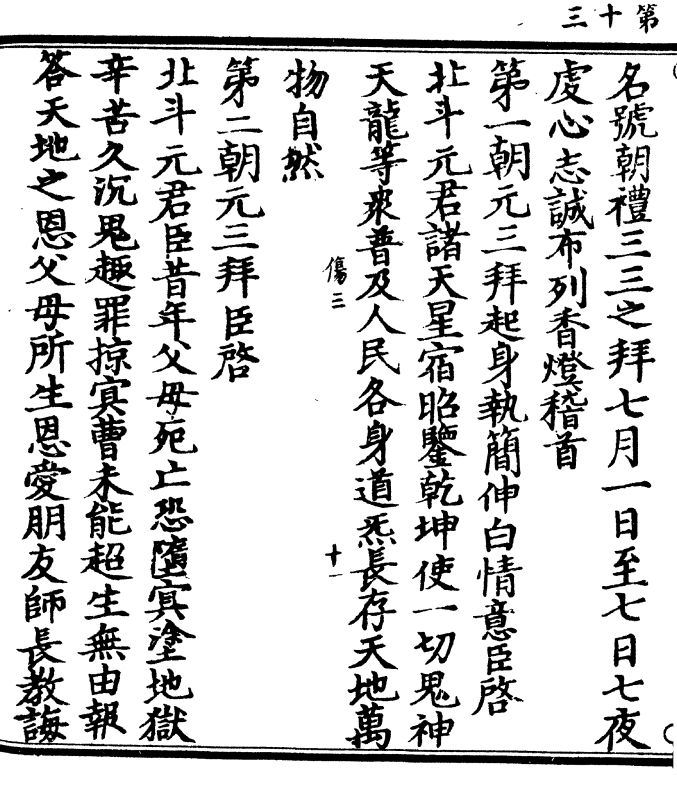 第十三
名號朝禮三三之拜七月一日至七日七夜
虔心志誠布列香燈稽首
第一朝元三拜起身執簡伸白情意臣啓
北斗元君諸天星宿昭鑒乾坤使一切鬼神
天龍等衆普及人民各身道炁長存天地萬
傷三
十一
物自然
第二朝元三拜臣啓
北斗元君臣昔年父母死亡恐墮㝠塗地獄
辛苦久沉鬼趣罪掠㝠曹未能超生無由報
答天地之恩父母所生恩愛朋友師長教誨